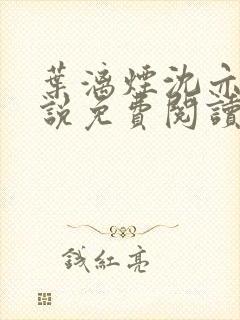 葉漓煙沈亦
說免費閱讀
錢紅亮